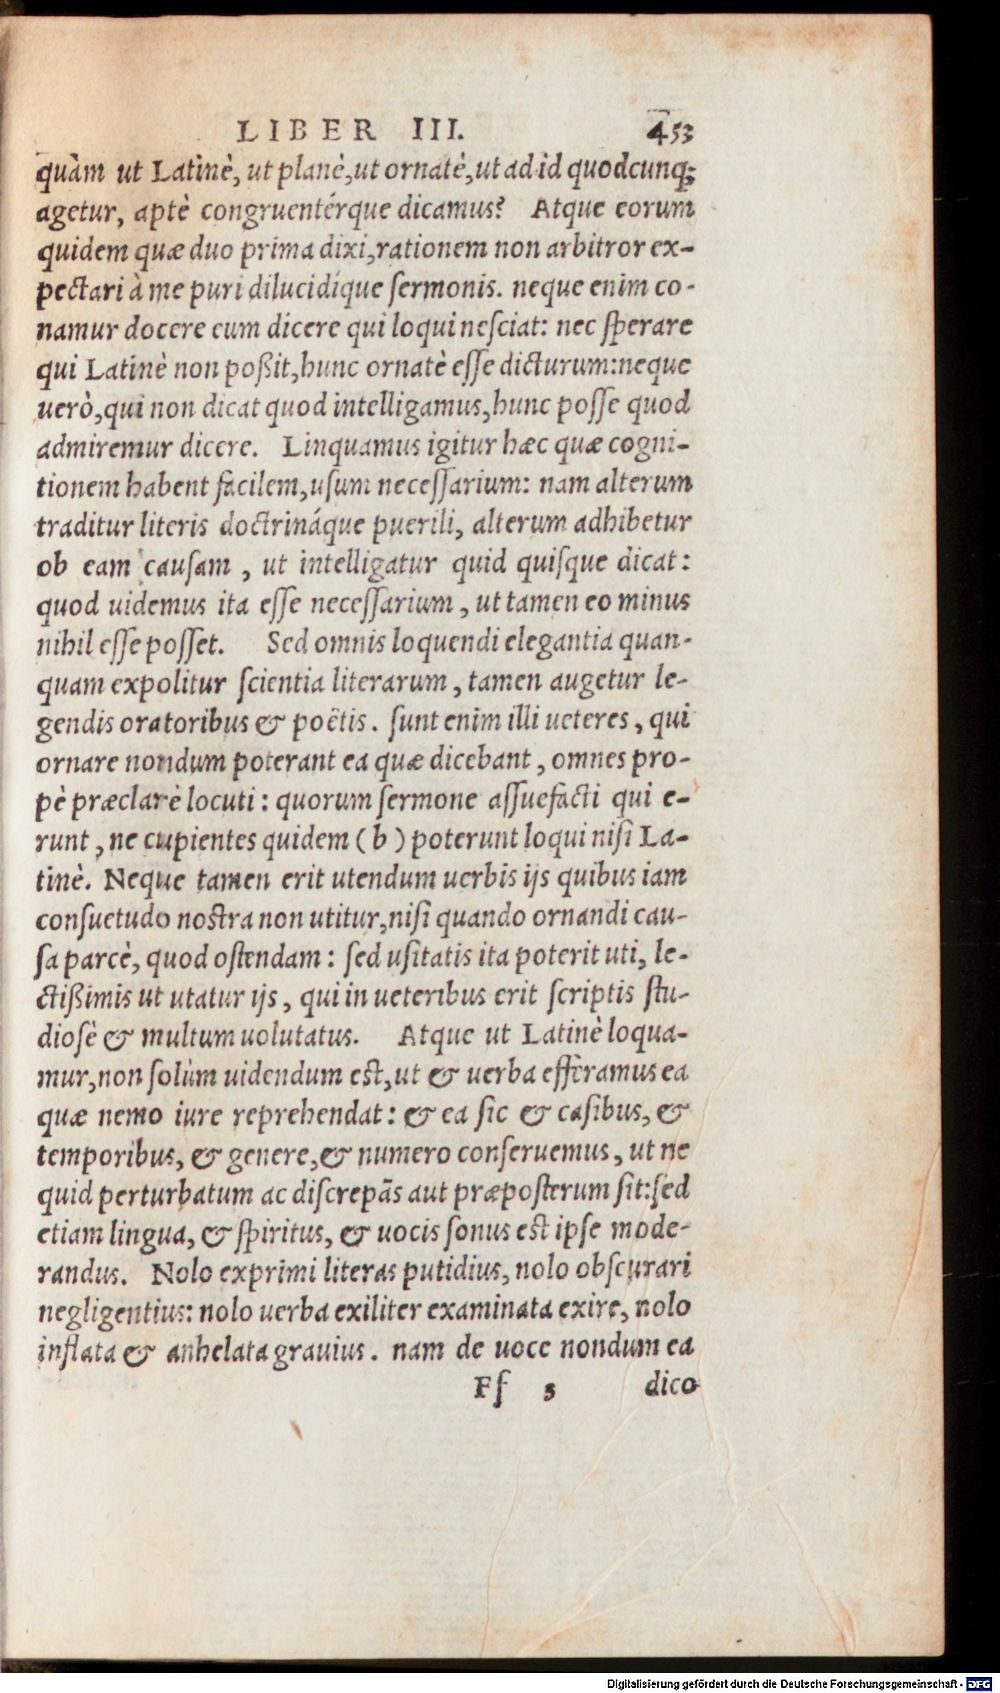 LIBER III. 453
quàm ut Latinè, ut planè, ut ornatè, ut ad id quodcunq;
agetur, aptè congruentérque dicamus? Atque eorum
quidem quæ duo prima dixi, rationem non arbitror ex-
pectari à me puri dilucidíque sermonis. neque enim co-
namur docere eum dicere qui loqui nesciat: nec sperare
qui Latinè non poßit, hunc ornatè esse dicturum: neque
uerò, qui non dicat quod intelligamus, hunc posse quod
admiremur dicere. Linquamus igitur hæc quæ cogni-
tionem habent facilem, usum necessarium: nam alterum
traditur literis doctrináque puerili, alterum adhibetur
ob eam causam, ut intelligatur quid quisque dicat:
quod uidemus ita esse necessarium, ut tamen eo minus
nihil esse posset. Sed omnis loquendi elegantia quan-
quam expolitur scientia literarum, tamen augetur le-
gendis oratoribus & poëtis. sunt enim illi ueteres, qui
ornare nondum poterant ea quæ dicebant, omnes pro-
pè præclarè locuti: quorum sermone assuefacti qui e-
runt, ne cupientes quidem (b) poterunt loqui nisi La-
tinè. Neque tamen erit utendum uerbis ijs quibus iam
consuetudo nostra non utitur, nisi quando ornandi cau-
sa parcè, quod ostendam: sed usitatis ita poterit uti, le-
ctißimis ut utatur ijs, qui in ueteribus erit scriptis stu-
diosè & multum uolutatus. Atque ut Latinè loqua-
mur, non solùm uidendum est, ut & uerba efferamus ea
quæ nemo iure reprehendat: & ea sic & casibus, &
temporibus, & genere, & numero conseruemus, ut ne
quid perturbatum ac discrepãs aut præposterum sit: sed
etiam lingua, & spiritus, & uocis sonus est ipse mode-
randus. Nolo exprimi literas putidius, nolo obscurari
negligentius: nolo uerba exiliter examinata exire, nolo
inflata & anhelata grauius. nam de uoce nondum ea
Ff 3 dico
Digitalisierung gefördert durch die Deutsche Forschungsgemeinschaft - DFG